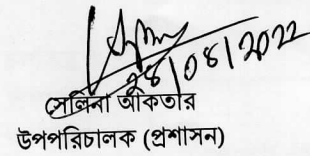 ২৪/০৪/2022
সেলিনা আকতার
উপপরিচালক (প্রশাসন)